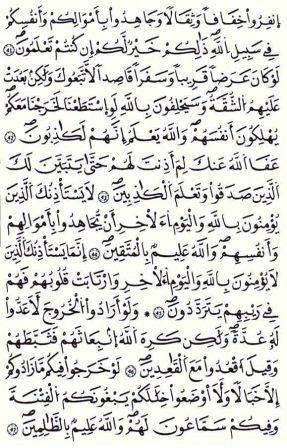 انفِرُوا خِفَافًا وَثِقَالًا وَجَاهِدُوا بِأَمْوَالِكُمْ وَأَنفُسِكُمْ
فِي سَبِيلِ اللَّهِ ذَٰلِكُمْ خَيْرٌ لَّكُمْ إِن كُنتُمْ تَعْلَمُونَ ٤١
لَوْ كَانَ عَرَضًا قَرِيبًا وَسَفَرًا قَاصِدًا لَّاتَّبَعُوكَ وَلَٰكِن بَعُدَتْ
عَلَيْهِمُ الشُّقَّةُ وَسَيَحْلِفُونَ بِاللَّهِ لَوِ اسْتَطَعْنَا لَخَرَجْنَا مَعَكُمْ
يُهْلِكُونَ أَنفُسَهُمْ وَاللَّهُ يَعْلَمُ إِنَّهُمْ لَكَاذِبُونَ ٤٢
عَفَا اللَّهُ عَنكَ لِمَ أَذِنتَ لَهُمْ حَتَّىٰ يَتَبَيَّنَ لَكَ
الَّذِينَ صَدَقُوا وَتَعْلَمَ الْكَاذِبِينَ ٤٣ لَا يَسْتَأْذِنُكَ الَّذِينَ
يُؤْمِنُونَ بِاللَّهِ وَالْيَوْمِ الْآخِرِ أَن يُجَاهِدُوا بِأَمْوَالِهِمْ
وَأَنفُسِهِمْ وَاللَّهُ عَلِيمٌ بِالْمُتَّقِينَ ٤٤ إِنَّمَا يَسْتَأْذِنُكَ الَّذِينَ
لَا يُؤْمِنُونَ بِاللَّهِ وَالْيَوْمِ الْآخِرِ وَارْتَابَتْ قُلُوبُهُمْ فَهُمْ
فِي رَيْبِهِمْ يَتَرَدَّدُونَ ٤٥ وَلَوْ أَرَادُوا الْخُرُوجَ لَأَعَدُّوا
لَهُ عُدَّةً وَلَٰكِن كَرِهَ اللَّهُ انبِعَاثَهُمْ فَثَبَّطَهُمْ
وَقِيلَ اقْعُدُوا مَعَ الْقَاعِدِينَ ٤٦ لَوْ خَرَجُوا فِيكُم مَّا زَادُوكُمْ
إِلَّا خَبَالًا وَلَأَوْضَعُوا خِلَالَكُمْ يَبْغُونَكُمُ الْفِتْنَةَ
وَفِيكُمْ سَمَّاعُونَ لَهُمْ وَاللَّهُ عَلِيمٌ بِالظَّالِمِينَ ٤٧